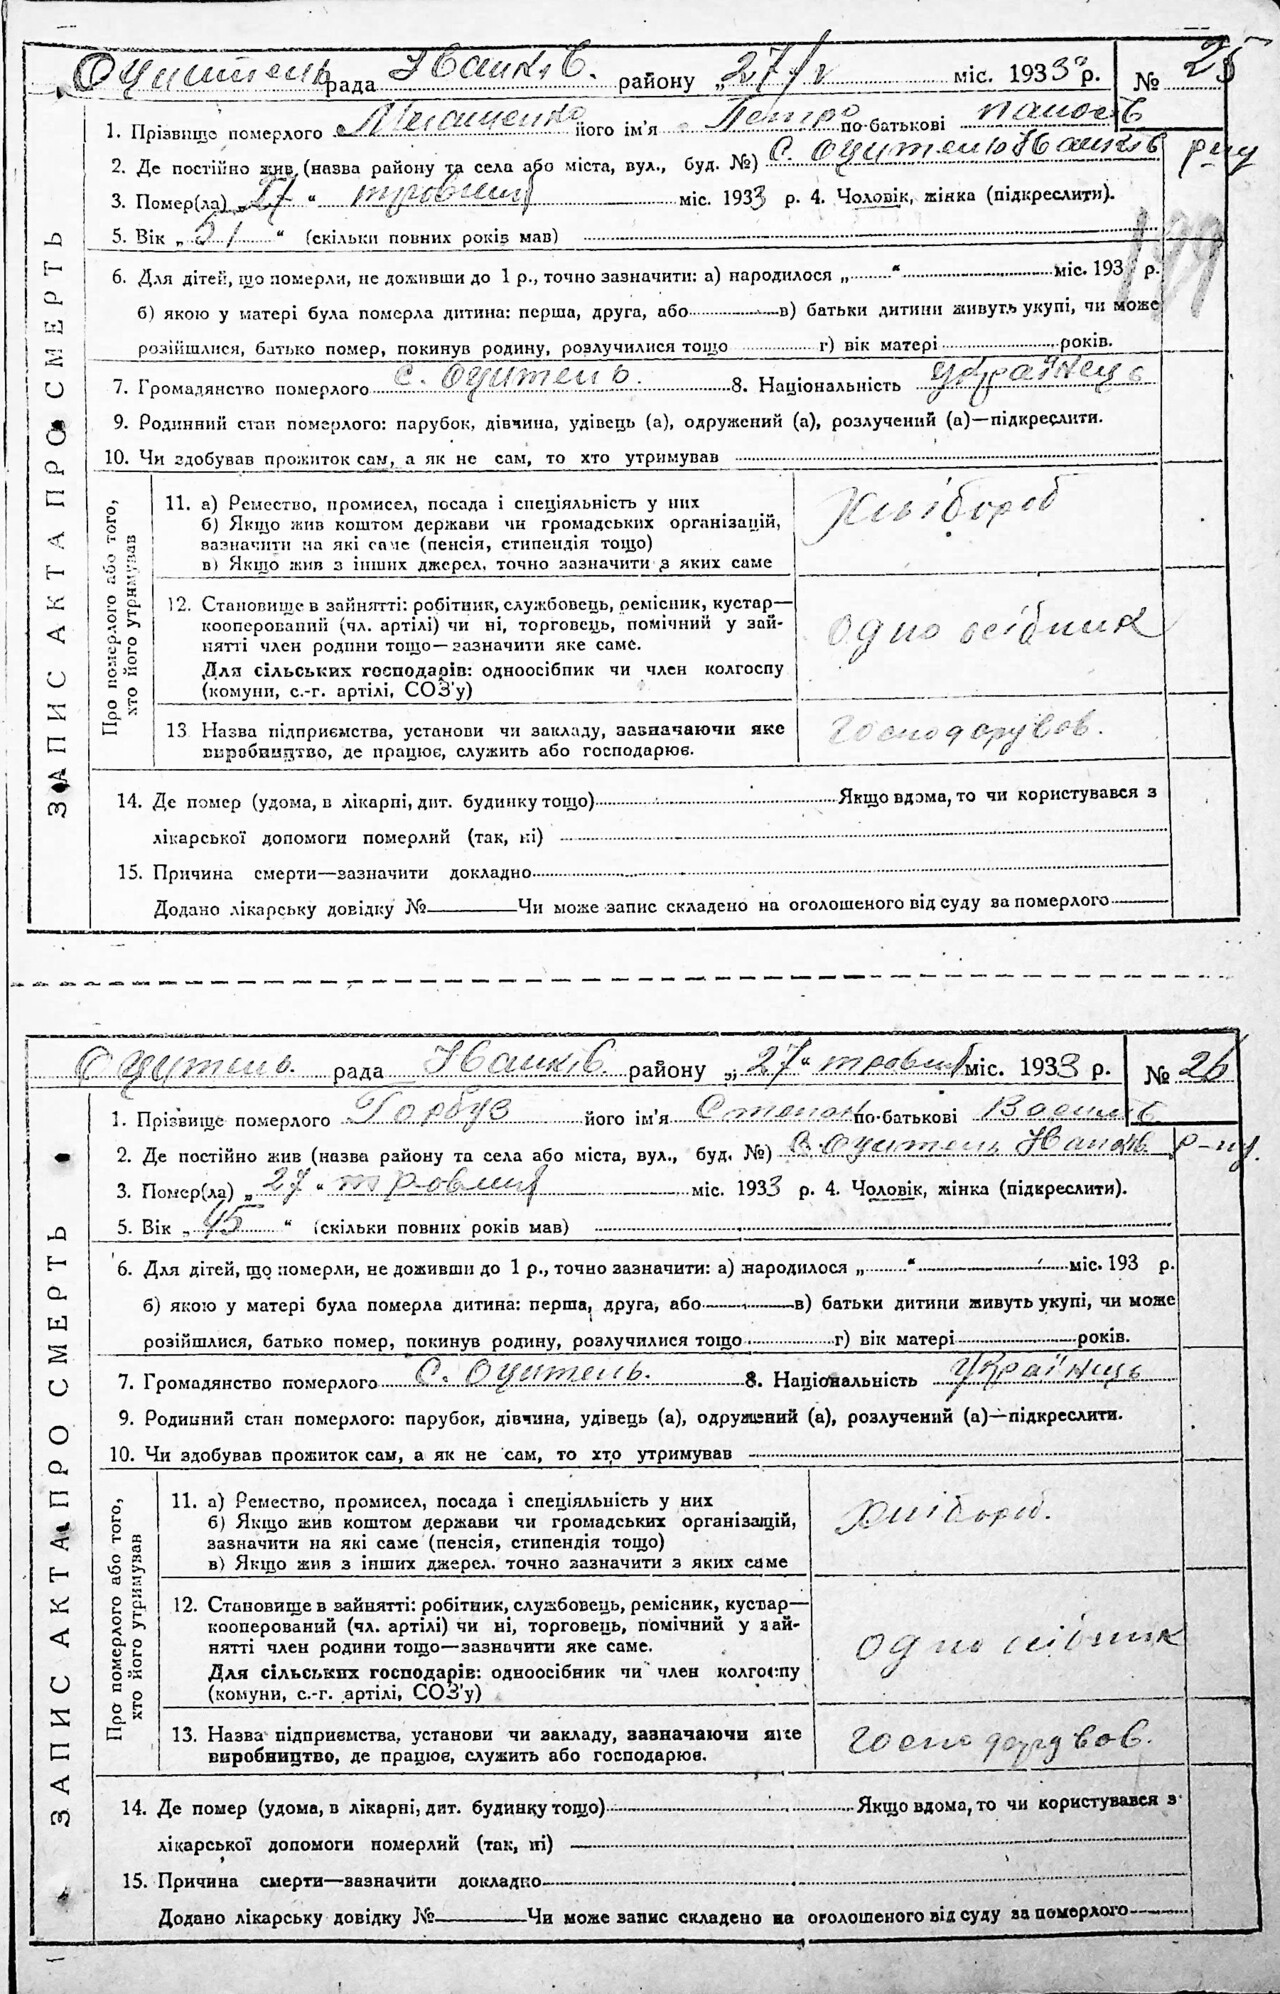 Оцитель рада Іванків. району „27/V міс. 1933 р. № 25
1. Прізвище померлого його ім'я Петро по-батькові
2. Де постійно жив (назва району та села або міста, вул., буд. №) с. Оцитель Іванків р-ну
3. Помер(ла) „27“ травня міс. 1933 р. 4. Чоловік, жінка (підкреслити).
5. Вік „ “ (скільки повних років мав)
199
6. Для дітей, що померли, не доживши до 1 р., точно зазначити: а) народилося „ “ міс. 193 р.
б) якою у матері була померла дитина: перша, друга, або в) батьки дитини живуть укупі, чи може
розійшлися, батько помер, покинув родину, розлучилися тощо г) вік матері років.
7. Громадянство померлого с. Оцитель. 8. Національність українець
9. Родинний стан померлого: парубок, дівчина, удівець (а), одружений (а), розлучений (а)—підкреслити.
10. Чи здобував прожиток сам, а як не сам, то хто утримував
Про померлого або того,
хто його утримував
11. а) Ремество, промисел, посада і спеціяльність у них
б) Якщо жив коштом держави чи громадських організацій,
зазначити на які саме (пенсія, стипендія тощо)
в) Якщо жив з інших джерел, точно зазначити з яких саме
Хлібороб
12. Становище в зайнятті: робітник, службовець, ремісник, кустар—
кооперований (чл. артілі) чи ні, торговець, помічний у зай-
нятті член родини тощо—зазначити яке саме.
Для сільських господарів: одноосібник чи член колгоспу
(комуни, с.-г. артілі, СОЗ'у)
одноосібник
13. Назва підприємства, установи чи закладу, зазначаючи яке
виробництво, де працює, служить або господарює.
господарував.
14. Де помер (удома, в лікарні, дит. будинку тощо) Якщо вдома, то чи користувався з
лікарської допомоги померлий (так, ні)
15. Причина смерти—зазначити докладно
Додано лікарську довідку № Чи може запис складено на оголошеного від суду за померлого
ЗАПИС АКТА ПРО СМЕРТЬ
Оцитель рада Іванків. району „27“ травня міс. 1933 р. № 26
1. Прізвище померлого Гарбуз його ім'я Степан по-батькові Васильів
2. Де постійно жив (назва району та села або міста, вул., буд. №) с. Оцитель Іванків. р-ну.
3. Помер(ла) „27“ травня міс. 1933 р. 4. Чоловік, жінка (підкреслити).
5. Вік „45 “ (скільки повних років мав)
6. Для дітей, що померли, не доживши до 1 р., точно зазначити: а) народилося „ “ міс. 193 р.
б) якою у матері була померла дитина: перша, друга, або в) батьки дитини живуть укупі, чи може
розійшлися, батько помер, покинув родину, розлучилися тощо г) вік матері років.
7. Громадянство померлого с. Оцитель. 8. Національність українець
9. Родинний стан померлого: парубок, дівчина, удівець (а), одружений (а), розлучений (а)—підкреслити.
10. Чи здобував прожиток сам, а як не сам, то хто утримував
Про померлого або того,
хто його утримував
11. а) Ремество, промисел, посада і спеціяльність у них
б) Якщо жив коштом держави чи громадських організацій,
зазначити на які саме (пенсія, стипендія тощо)
в) Якщо жив з інших джерел. точно зазначити з яких саме
Хлібороб.
12. Становище в зайнятті: робітник, службовець, ремісник, кустар—
кооперований (чл. артілі) чи ні, торговець, помічний у зай-
нятті член родини тощо—зазначити яке саме.
Для сільських господарів: одноосібник чи член колгоспу
(комуни, с.-г. артілі, СОЗ'у)
одноосібник
13. Назва підприємства, установи чи закладу, зазначаючи яке
виробництво, де працює, служить або господарює.
господарував.
14. Де помер (удома, в лікарні, дит. будинку тощо) Якщо вдома, то чи користувався з
лікарської допомоги померлий (так, ні)
15. Причина смерти—зазначити докладно
Додано лікарську довідку № Чи може запис складено на оголошеного від суду за померлого
ЗАПИС АКТА ПРО СМЕРТЬ